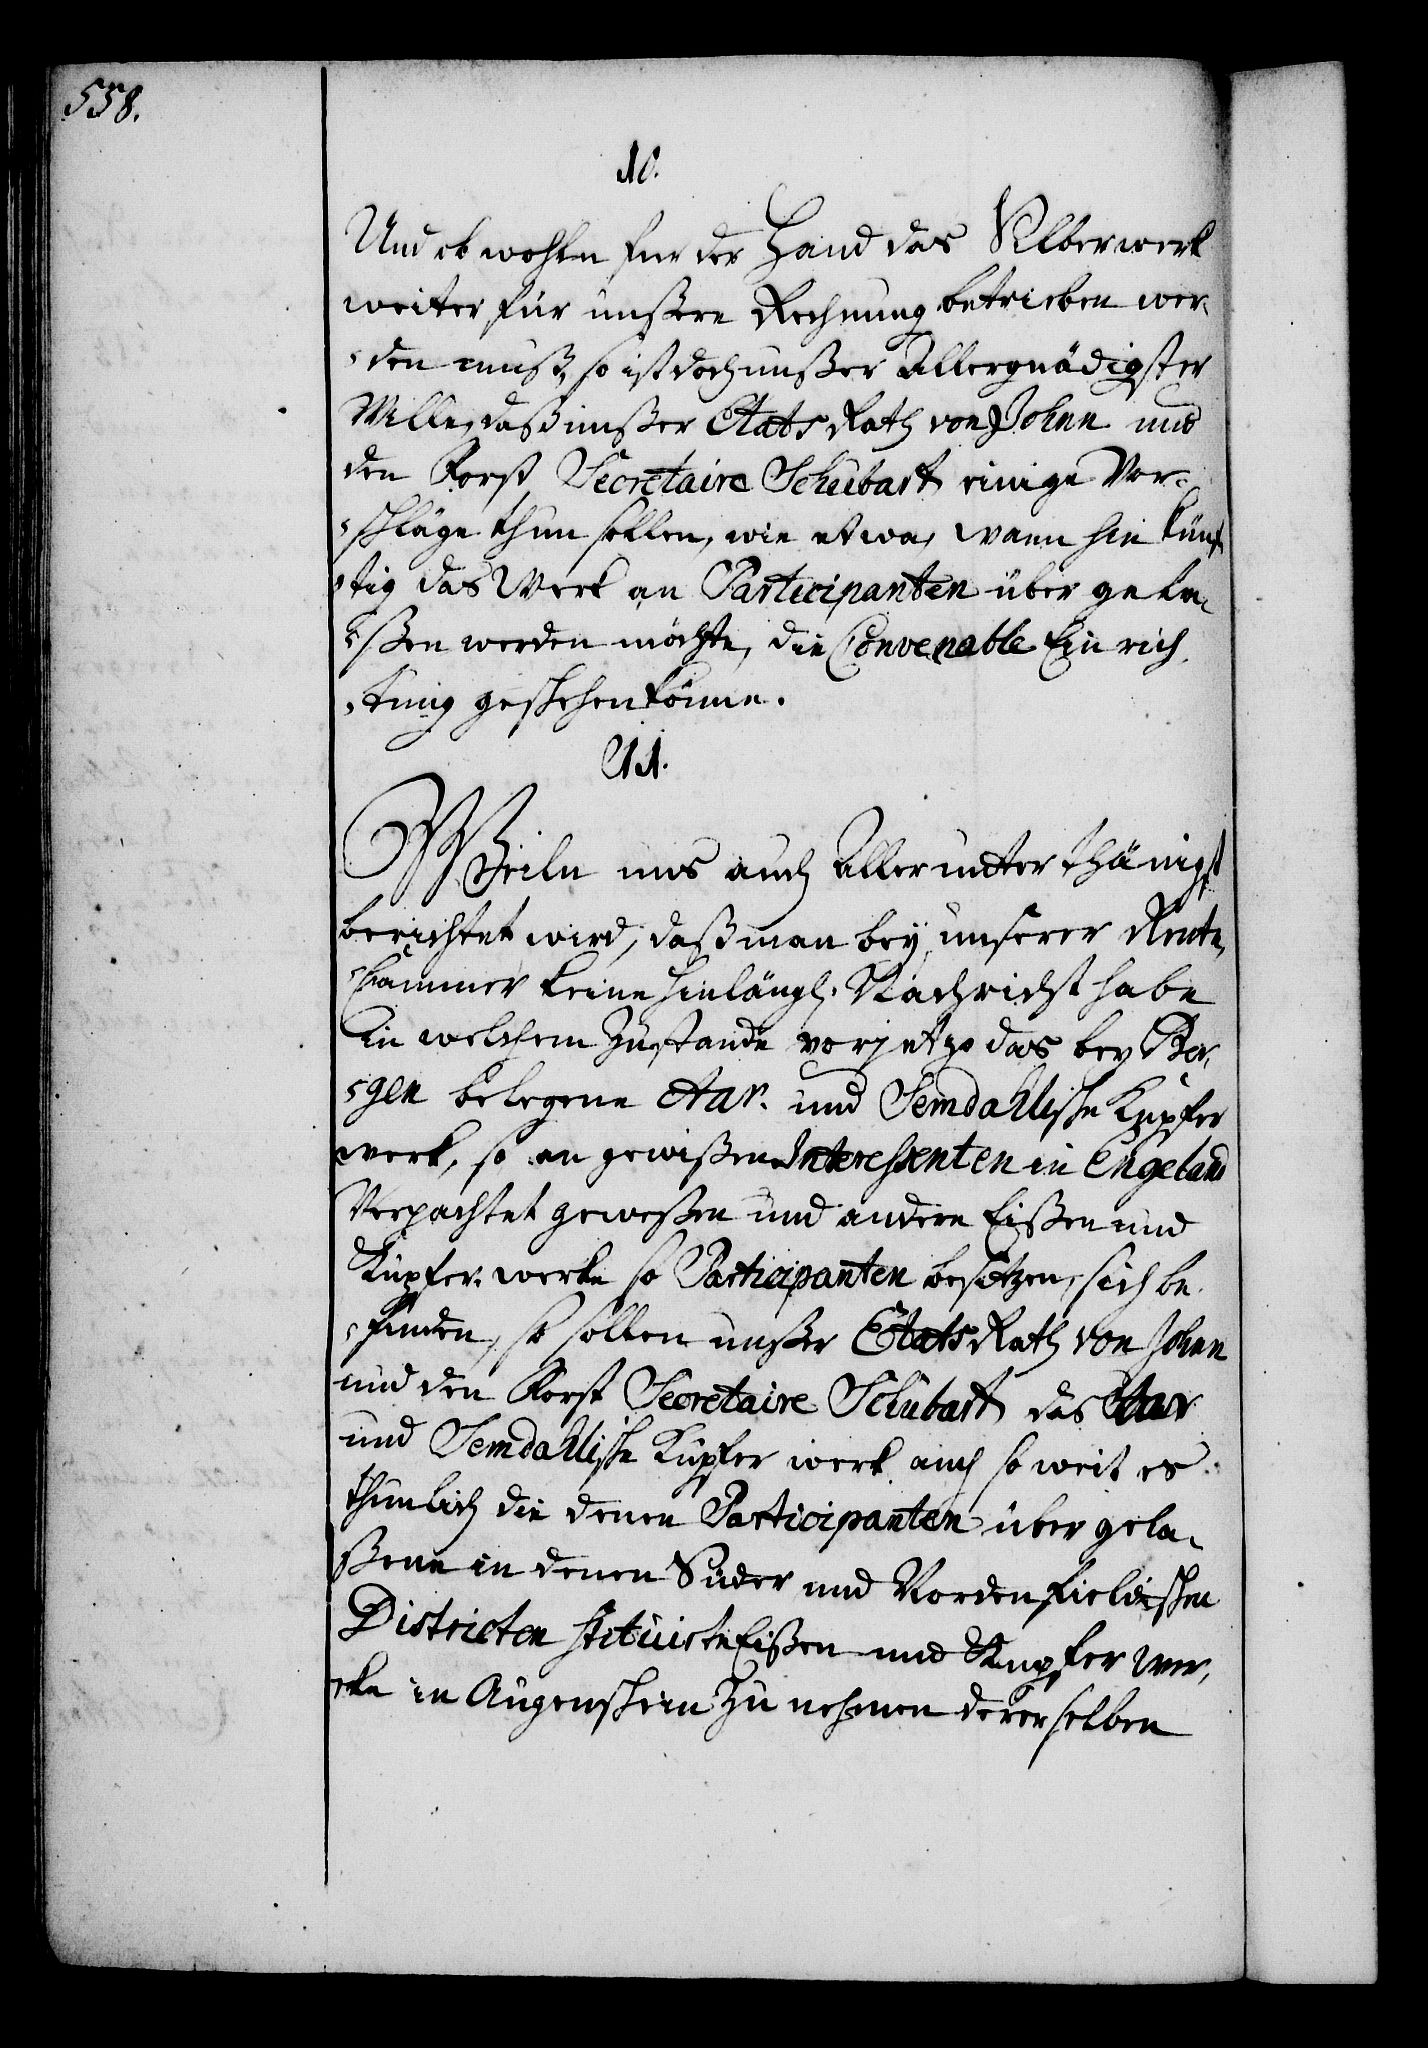 558.
10.
Und ob wohln für der Hand das Silberwerk
weiter für unßere Rechnung betrieben wer-
den muß, so ist doch unßer Allergnädigster
Wille, daß unßer Etats Rath von Johnn und
den Forst Secretaire Schubart einige Vor-
schläge thun sollen, wie etwa, wann hin künf
tig das Werk an Participanten über gela-
ßen werden möchte, die Convenable Ein rich-
tung geschehen könne.
11.
Weiln uns auch Allerunterthänigst
berichtet wird, daß man bey unserer Rente-
Cammer keine hinlängl. Nachricht habe
in welchem Zustande vorjetzo das bey Ber-
gen belegene Aar- und Semdahlische Kupfer
werk, so an gewißen Interessenten in Engeland
Verpachtet geweßen und andere Eißen und
Kupfer werke so Participanten besitzen, sich be-
finden, so sollen unßer Etats Rath von Johnn
und den Forst Secretaire Schubart das Aar
und Semdahlische Kupfer werk auch so weit es
thunlich die denen Participanten über gela-
ßene in denen Süder und Norden fieldischen
Districten situirte Eißen und Kupfer wer-
cke in Augenschein zu nehmen dererselben